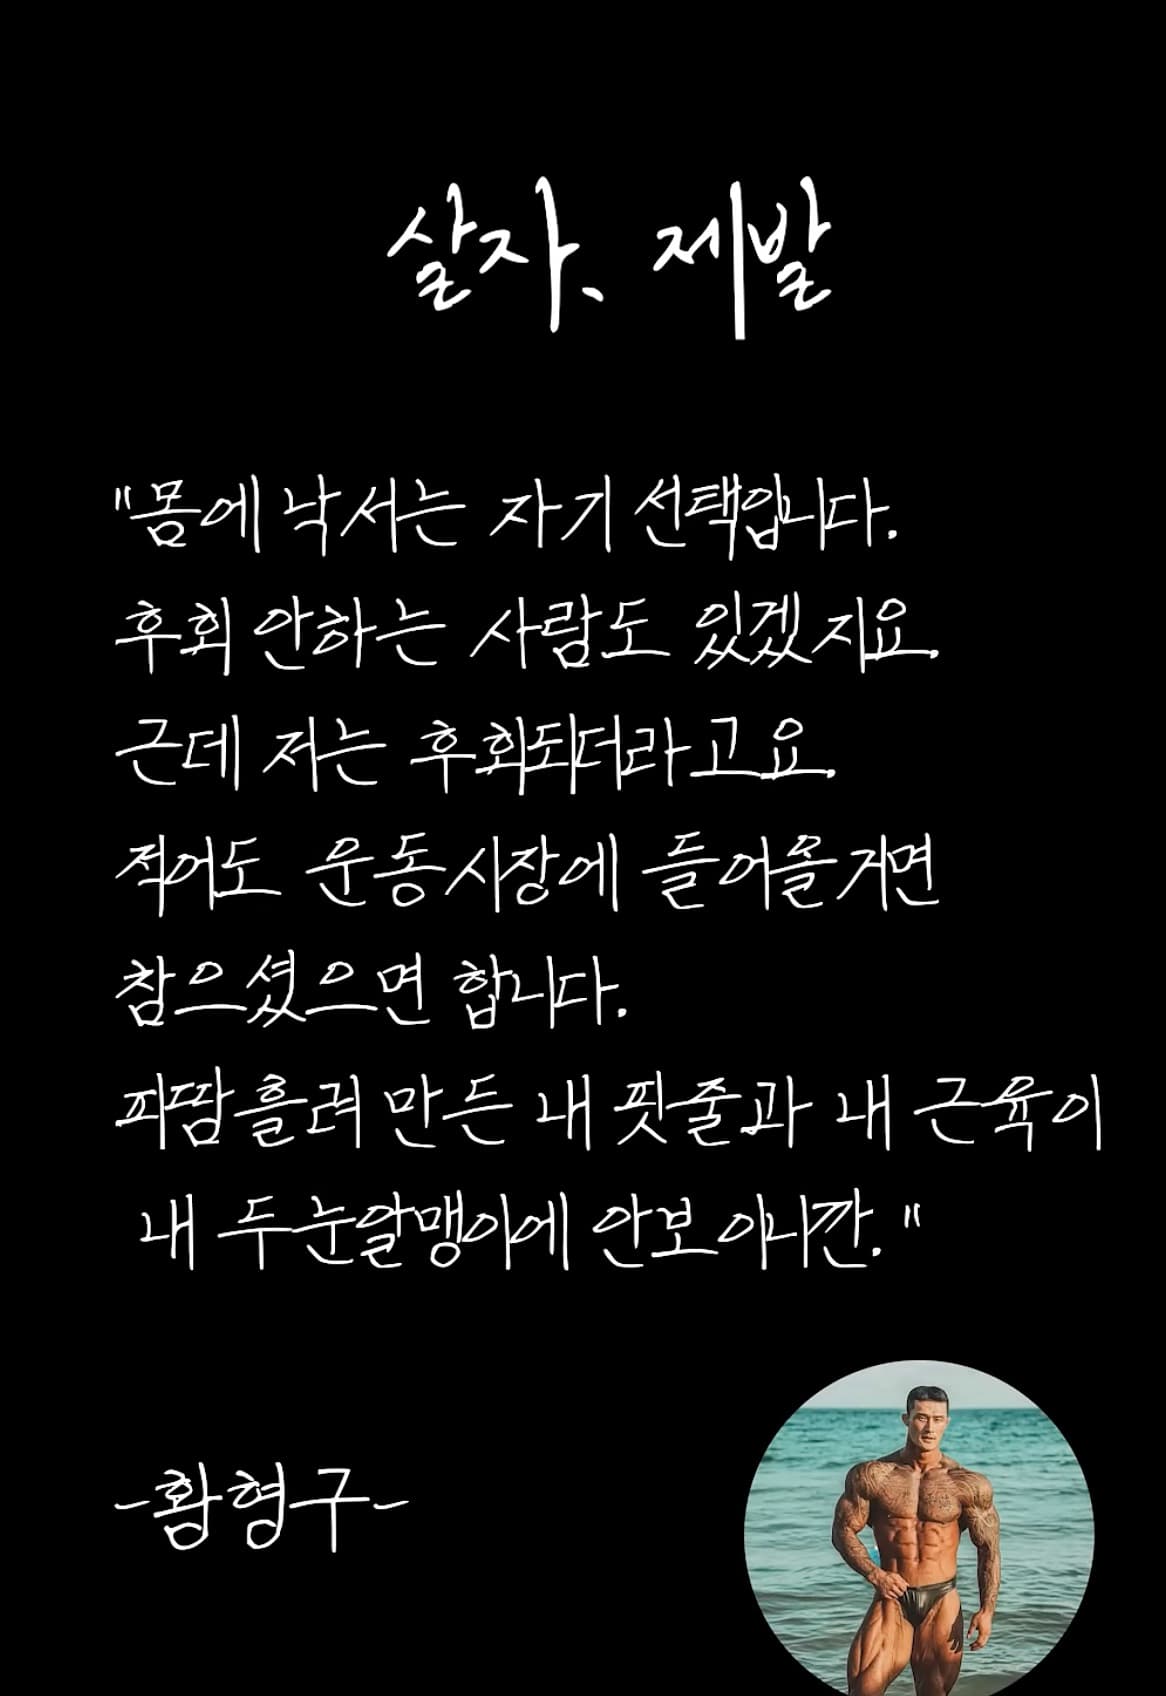 살자, 제발
"몸에 낙서는 자기 선택입니다.
후회 안하는 사람도 있겠지요.
근데 저는 후회되더라고요.
적어도 운동시장에 들어올거면
참으셨으면 합니다.
피땀흘려 만든 내 핏줄과 내 근육이
내 두눈알맹이에 안보이니깐."
-황형구-